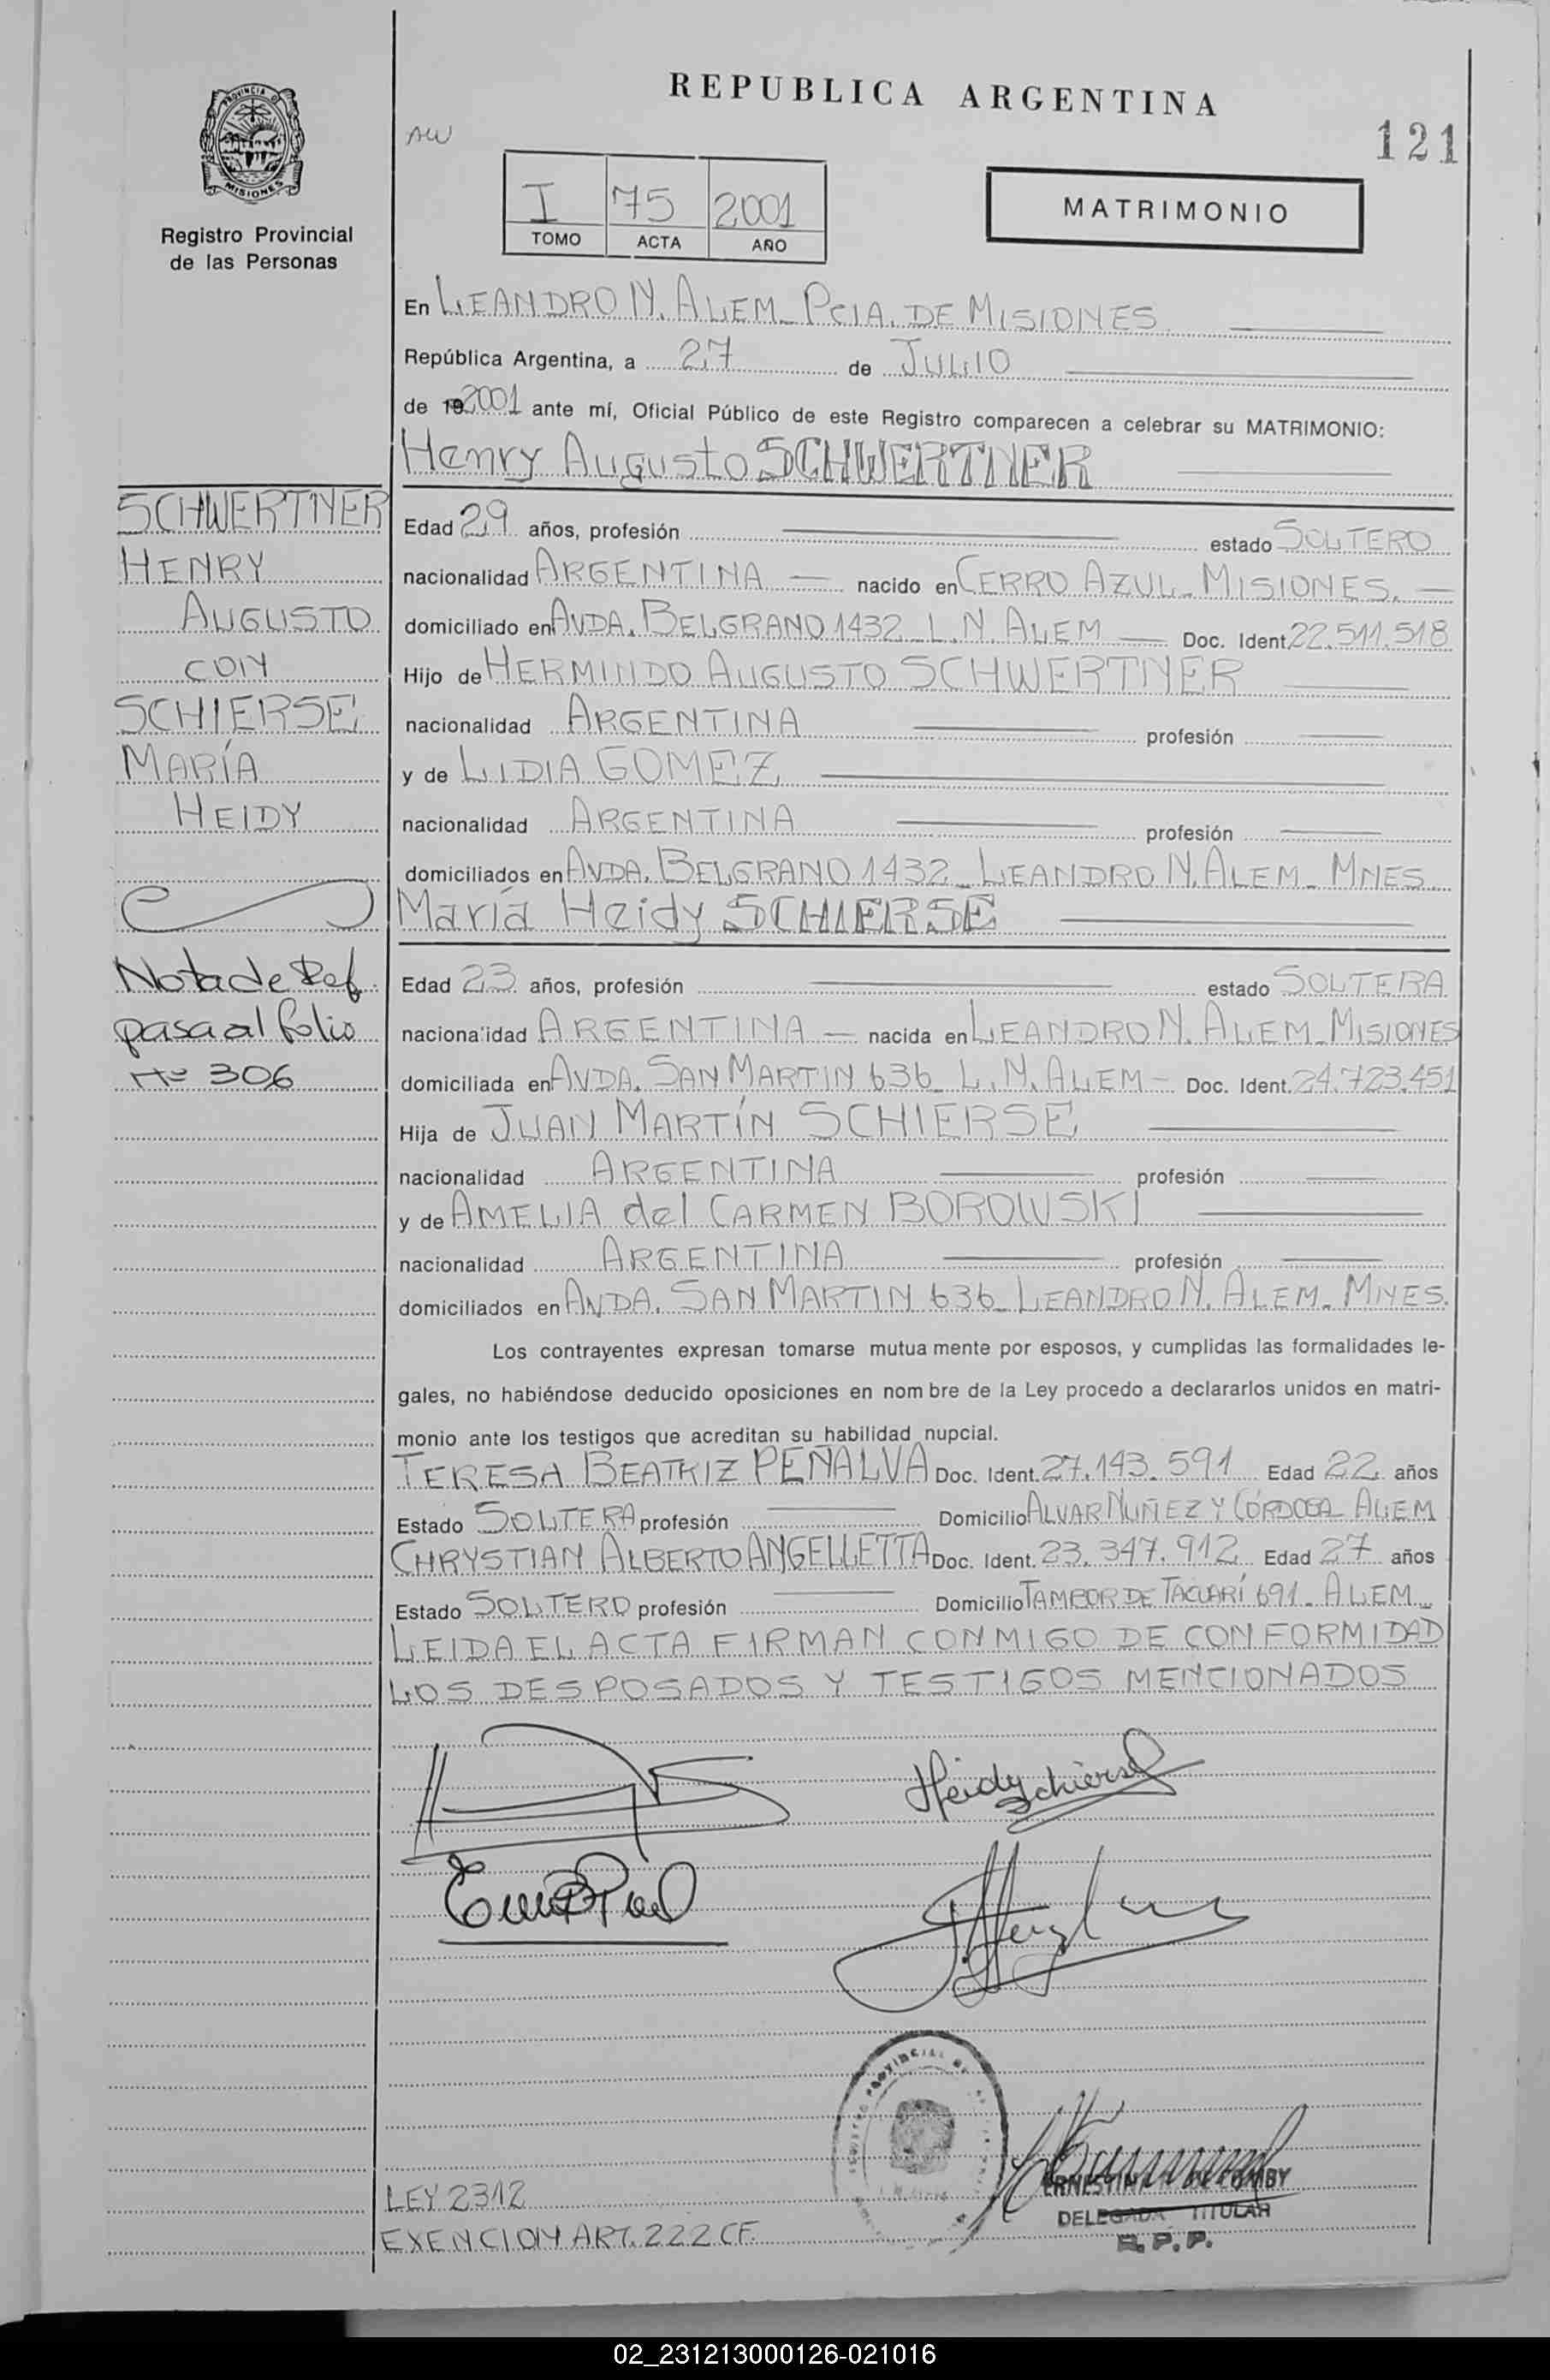 REPUBLICA ARGENTINA
121
AW
PROVINCIA D
MISIONES
Registro Provincial
de las Personas
I 75 2001
TOMO ACTA AÑO
MATRIMONIO
En LEANDRO N. ALEM_ PCIA. DE MISIONES
República Argentina, a 27 de JULIO
de 19 2001 ante mí, Oficial Público de este Registro comparecen a celebrar su MATRIMONIO:
Henry Augusto SCHWERTNER
SCHWERTNER
HENRY
AUGUSTO
CON
SCHIERSE
MARÍA
HEIDY
Nota de Ref.
pasa al folio
Nº 306
Edad 29 años, profesión estado SOLTERO
nacionalidad ARGENTINA — nacido en CERRO AZUL_ MISIONES. —
domiciliado en AVDA. BELGRANO 1432_ L.N. ALEM — Doc. Ident. 22.511.518
Hijo de HERMINDO AUGUSTO SCHWERTNER
nacionalidad ARGENTINA profesión
y de LIDIA GOMEZ
nacionalidad ARGENTINA profesión
domiciliados en AVDA. BELGRANO 1432_ LEANDRO N. ALEM_ MNES.
María Heidy SCHIERSE
Edad 23 años, profesión estado SOLTERA
nacionalidad ARGENTINA — nacida en LEANDRO N. ALEM_ MISIONES
domiciliada en AVDA. SAN MARTIN 636_ L.N. ALEM — Doc. Ident. 24.723.451
Hija de JUAN MARTÍN SCHIERSE
nacionalidad ARGENTINA profesión
y de AMELIA del CARMEN BOROWSKI
nacionalidad ARGENTINA profesión
domiciliados en AVDA. SAN MARTIN 636_ LEANDRO N. ALEM_ MNES.
Los contrayentes expresan tomarse mutua mente por esposos, y cumplidas las formalidades le-
gales, no habiéndose deducido oposiciones en nom bre de la Ley procedo a declararlos unidos en matri-
monio ante los testigos que acreditan su habilidad nupcial.
TERESA BEATRIZ PEÑALVA Doc. Ident. 27.143.591 Edad 22 años
Estado SOLTERA profesión Domicilio ALVAR NUÑEZ Y CÓRDOBA_ ALEM
CHRYSTIAN ALBERTO ANGELLETTA Doc. Ident. 23.347.912 Edad 27 años
Estado SOLTERO profesión Domicilio TAMBOR DE TACUARÍ 691_ ALEM_
LEIDA EL ACTA FIRMAN CONMIGO DE CONFORMIDAD
LOS DESPOSADOS Y TESTIGOS MENCIONADOS
Heidy Schierse
DE COMBY
DELEGADA TITULAR
R.P.P.
LEY 2312
EXENCION ART. 222 CF.
02_231213000126-021016